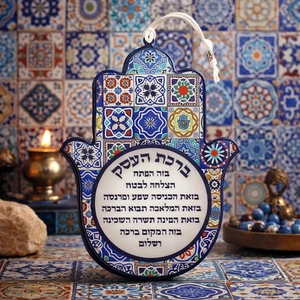 ברכת העסק
בזה הפתח
הצלחה לבטח
בזאת הכניסה שפע ופרנסה
בזאת המלאכה תבוא הברכה
בזאת הפינה תשרה השכינה
בזה המקום ברכה
ושלום